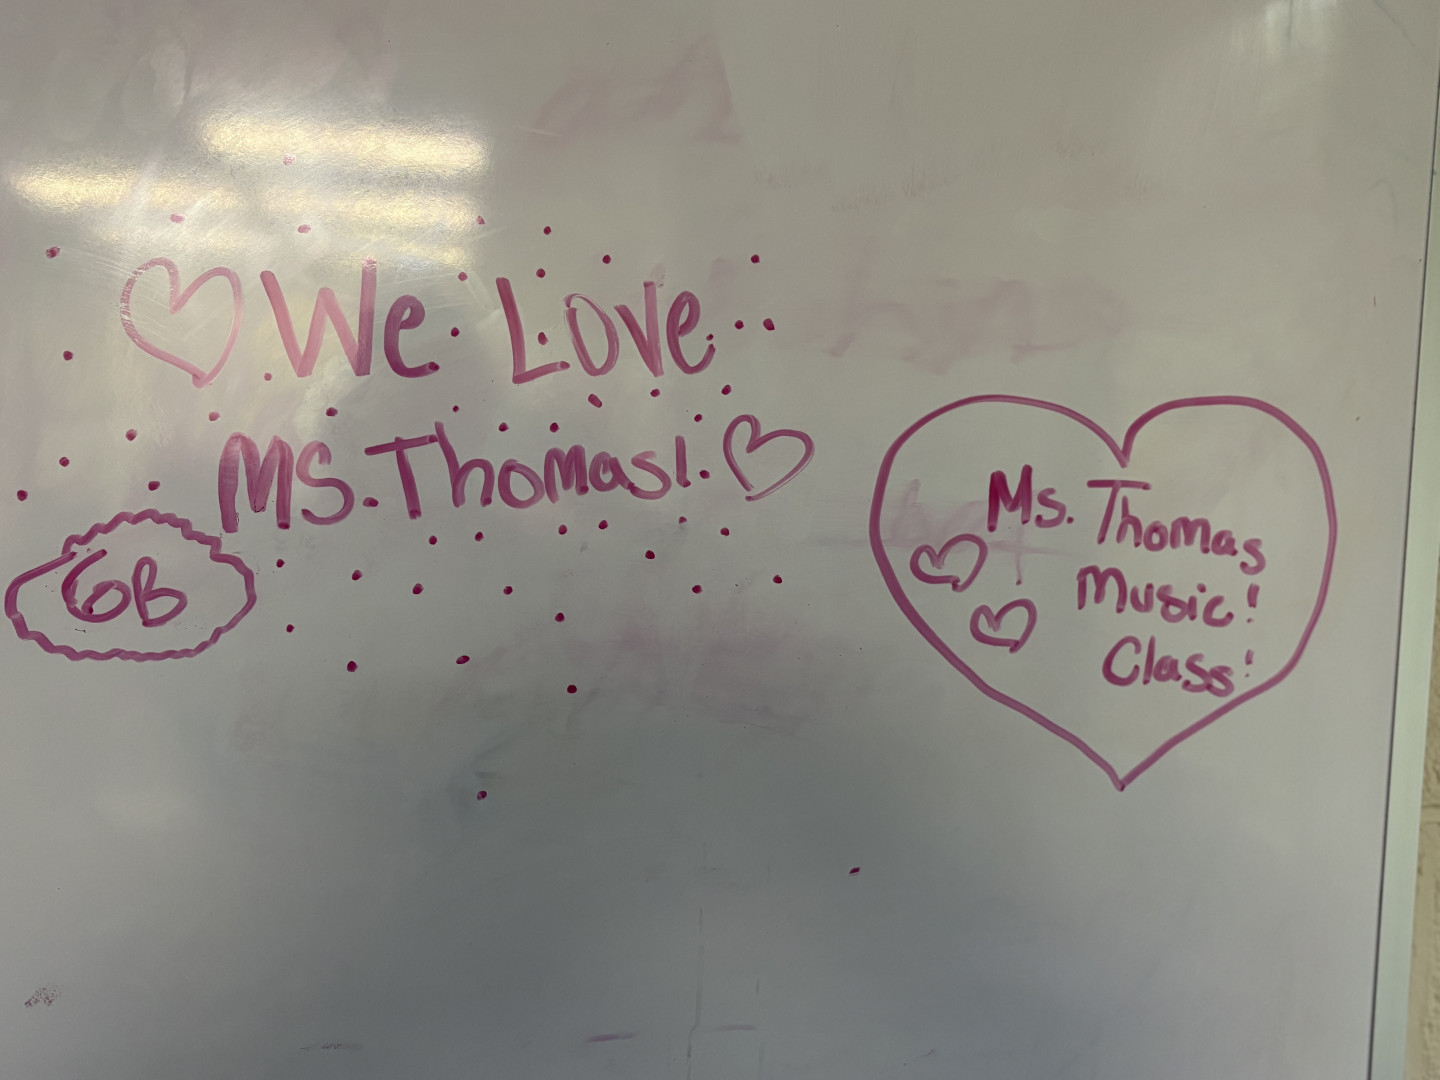 We Love
Ms. Thomas!
6B
Ms. Thomas
Music!
Class!